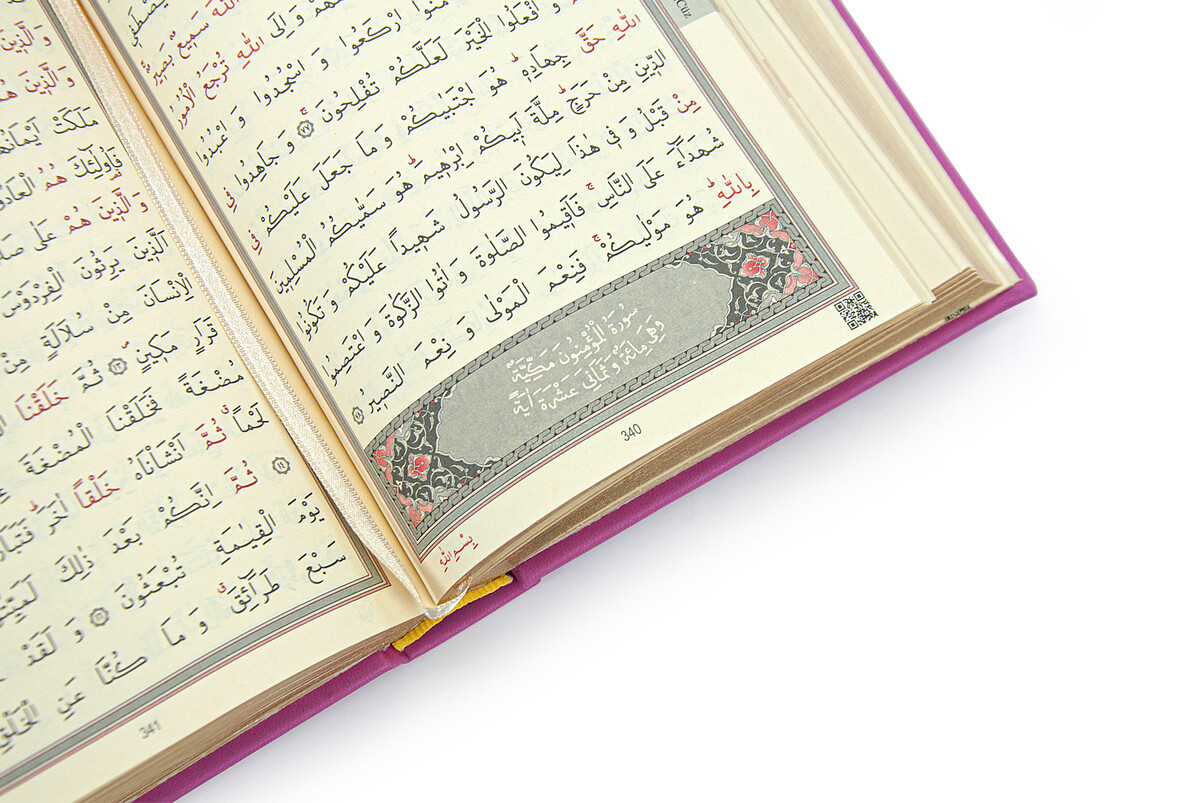 اللّٰهَ سَمِيعٌ بَصِيرٌ
وَاِلَى اللّٰهِ تُرْجَعُ الْاُمُورُ
ارْكَعُوا وَ اسْجُدُوا وَ اعْبُدُوا
وَ افْعَلُوا الْخَيْرَ لَعَلَّكُمْ تُفْلِحُونَ ۚ ﴿٧٧﴾ وَ جَاهِدُوا فِي
اللّٰهِ حَقَّ جِهَادِهِ ۜ هُوَ اجْتَبٰيكُمْ وَ مَا جَعَلَ عَلَيْكُمْ فِي
الدِّينِ مِنْ حَرَجٍ ۜ مِلَّةَ اَبِيكُمْ اِبْرٰهِيمَ ۜ هُوَ سَمّٰيكُمُ الْمُسْلِمِينَ
مِنْ قَبْلُ وَ فِي هٰذَا لِيَكُونَ الرَّسُولُ شَهِيداً عَلَيْكُمْ وَ تَكُونُوا
شُهَدَٓاءَ عَلَى النَّاسِ ۚ فَاَقِيمُوا الصَّلٰوةَ وَ اٰتُوا الزَّكٰوةَ وَ اعْتَصِمُوا
بِاللّٰهِ ۜ هُوَ مَوْلٰيكُمْ ۚ فَنِعْمَ الْمَوْلٰى وَ نِعْمَ النَّصِيرُ ﴿٧٨﴾
سُورَةُ الْمُؤْمِنُونَ مَكِّيَّةٌ
وَهِيَ مِائَةٌ وَ ثَمَانِيَ عَشْرَةَ اٰيَةً
340
بِسْمِ اللّٰهِ
Cüz
وَ الَّذِينَ
وَ الَّذِينَ هُمْ
مَلَكَتْ اَيْمَانُهُمْ
فَاُولٰٓئِكَ هُمُ الْعَادُونَ
وَ الَّذِينَ هُمْ عَلٰى
الَّذِينَ يَرِثُونَ الْفِرْدَوْسَ
الْاِنْسَانَ مِنْ سُلَالَةٍ مِنْ
قَرَارٍ مَكِينٍ ﴿١٣﴾ ثُمَّ خَلَقْنَا
مُضْغَةً فَخَلَقْنَا الْمُضْغَةَ
لَحْماً ثُمَّ اَنْشَأْنَاهُ خَلْقاً اٰخَرَ
﴿١٤﴾ ثُمَّ اِنَّكُمْ بَعْدَ ذٰلِكَ
يَوْمَ الْقِيٰمَةِ تُبْعَثُونَ ﴿١٦﴾ وَ لَقَدْ
سَبْعَ طَرَٓائِقَ وَ مَا كُنَّا عَنِ الْخَلْقِ
341